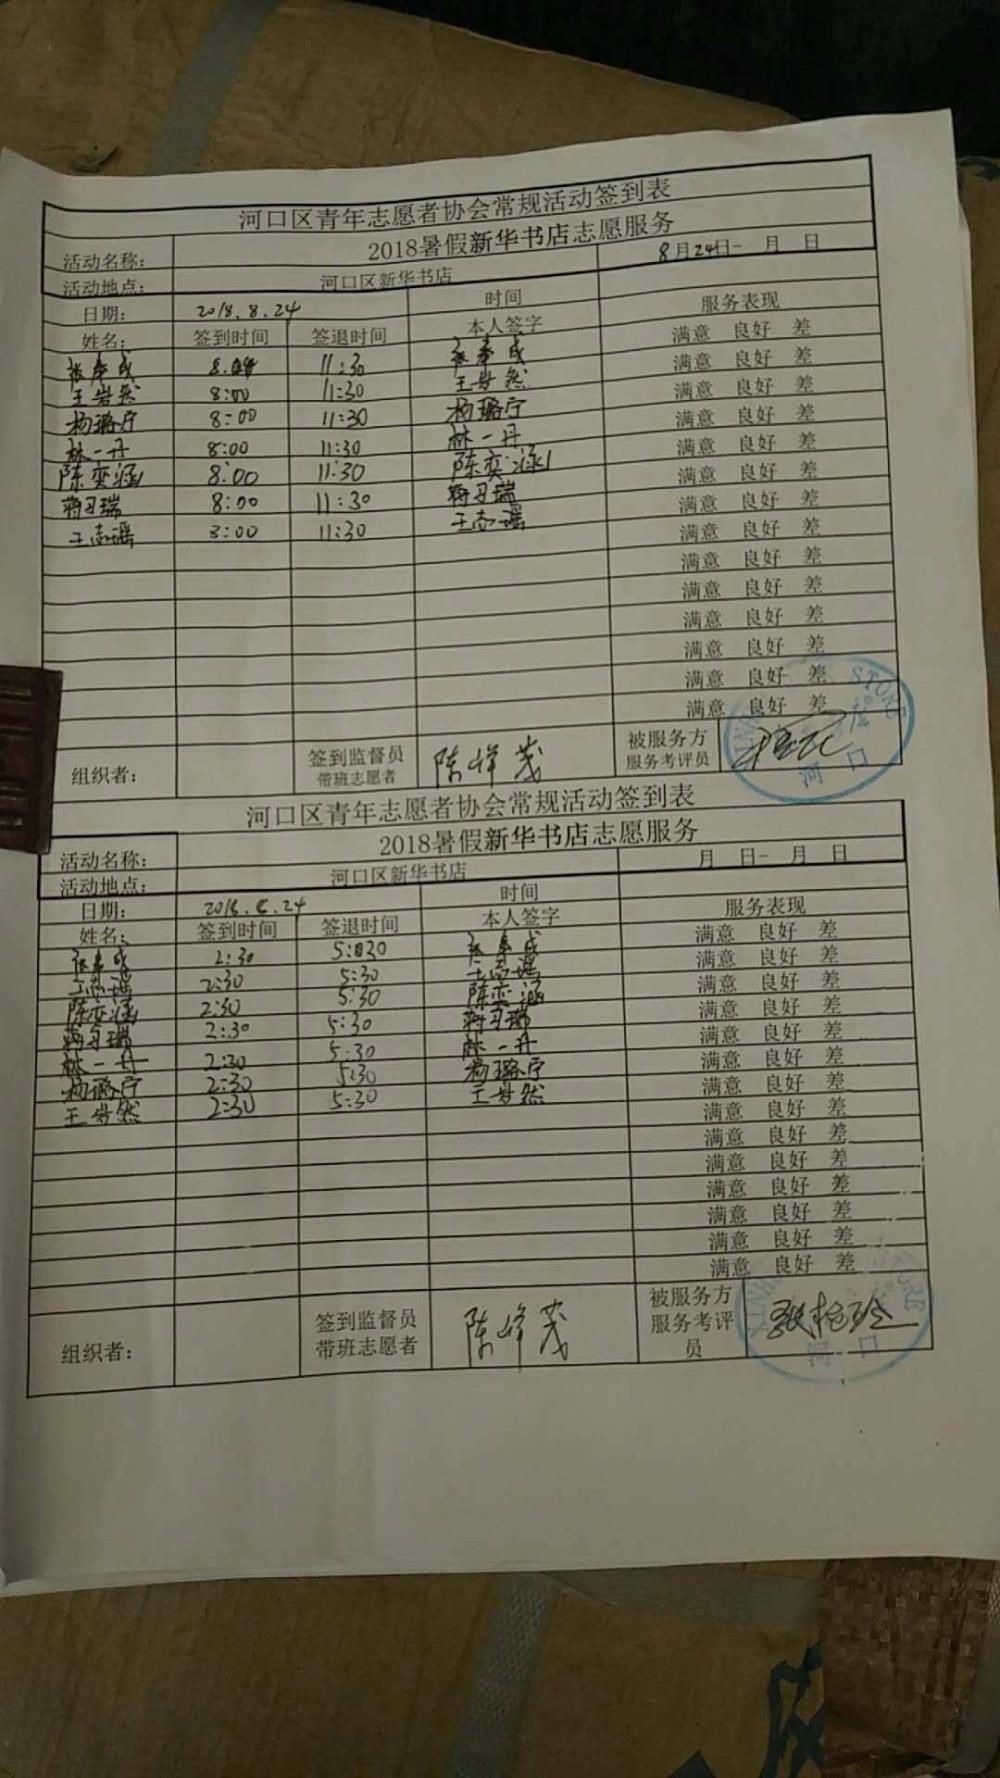 河口区青年志愿者协会常规活动签到表
活动名称: 2018暑假新华书店志愿服务 8月24日- 月 日
活动地点: 河口区新华书店
日期: 2018.8.24 时间
姓名: 签到时间 签退时间 本人签字 服务表现
11:30 满意 良好 差
王岩然 8:00 11:30 王岩然 满意 良好 差
杨璐宁 8:00 11:30 杨璐宁 满意 良好 差
林一丹 8:00 11:30 林一丹 满意 良好 差
陈奕涵 8:00 11:30 陈奕涵 满意 良好 差
8:00 11:30 满意 良好 差
王志瑶 8:00 11:30 王志瑶 满意 良好 差
满意 良好 差
满意 良好 差
满意 良好 差
满意 良好 差
满意 良好 差
满意 良好 差
满意 良好 差
组织者: 签到监督员 陈峰茂 被服务方
带班志愿者 服务考评员
STORE
河口
河口区青年志愿者协会常规活动签到表
活动名称: 2018暑假新华书店志愿服务 月 日- 月 日
活动地点: 河口区新华书店
日期: 时间
姓名: 签到时间 签退时间 本人签字 服务表现
2:30 满意 良好 差
王志瑶 2:30 5:30 王志瑶 满意 良好 差
陈奕涵 2:30 5:30 陈奕涵 满意 良好 差
2:30 5:30 满意 良好 差
林一丹 2:30 5:30 林一丹 满意 良好 差
杨璐宁 2:30 5:30 杨璐宁 满意 良好 差
王岩然 2:30 5:30 王岩然 满意 良好 差
满意 良好 差
满意 良好 差
满意 良好 差
满意 良好 差
满意 良好 差
满意 良好 差
满意 良好 差
组织者: 签到监督员 陈峰茂 被服务方
带班志愿者 服务考评
员
河口